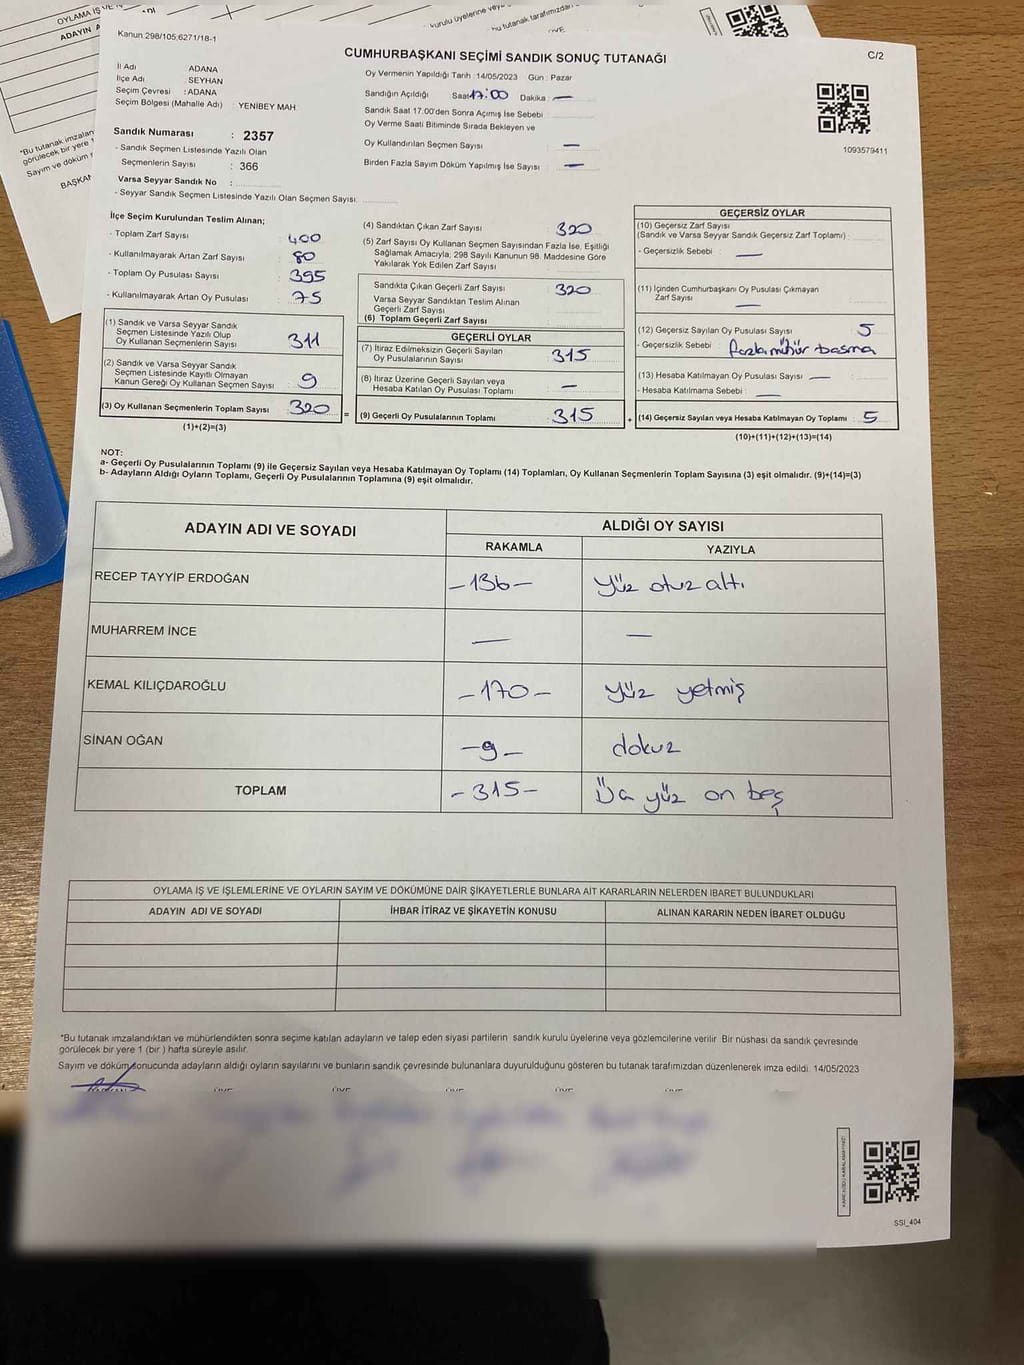 OYLAMA İŞ VE
ADAYIN A
kurulu üyelerine veya
bu tutanak tarafımızdan
ÜYE
*Bu tutanak imzalan
görülecek bir yere 1
Sayım ve döküm
BAŞKAN
Kanun 298/105,6271/18-1
CUMHURBAŞKANI SEÇİMİ SANDIK SONUÇ TUTANAĞI
C/2
İl Adı ADANA
İlçe Adı : SEYHAN
Seçim Çevresi : ADANA
Seçim Bölgesi (Mahalle Adı) : YENİBEY MAH
Sandık Numarası : 2357
- Sandık Seçmen Listesinde Yazılı Olan
Seçmenlerin Sayısı : 366
Varsa Seyyar Sandık No :
- Seyyar Sandık Seçmen Listesinde Yazılı Olan Seçmen Sayısı:
Oy Vermenin Yapıldığı Tarih : 14/05/2023 Gün : Pazar
Sandığın Açıldığı Saat 17:00 Dakika —
Sandık Saat 17:00'den Sonra Açmış İse Sebebi :
Oy Verme Saati Bitiminde Sırada Bekleyen ve
Oy Kullandırılan Seçmen Sayısı : —
Birden Fazla Sayım Döküm Yapılmış İse Sayısı : —
1093579411
İlçe Seçim Kurulundan Teslim Alınan;
- Toplam Zarf Sayısı : 400
- Kullanılmayarak Artan Zarf Sayısı : 80
- Toplam Oy Pusulası Sayısı : 395
- Kullanılmayarak Artan Oy Pusulası : 75
(1) Sandık ve Varsa Seyyar Sandık
Seçmen Listesinde Yazılı Olup
Oy Kullanan Seçmenlerin Sayısı : 311
(2) Sandık ve Varsa Seyyar Sandık
Seçmen Listesinde Kayıtlı Olmayan
Kanun Gereği Oy Kullanan Seçmen Sayısı : 9
(3) Oy Kullanan Seçmenlerin Toplam Sayısı 320 =
(1)+(2)=(3)
(4) Sandıktan Çıkan Zarf Sayısı : 320
(5) Zarf Sayısı Oy Kullanan Seçmen Sayısından Fazla İse, Eşitliği
Sağlamak Amacıyla; 298 Sayılı Kanunun 98. Maddesine Göre
Yakılarak Yok Edilen Zarf Sayısı :
Sandıkta Çıkan Geçerli Zarf Sayısı : 320
Varsa Seyyar Sandıktan Teslim Alınan
Geçerli Zarf Sayısı :
(6) Toplam Geçerli Zarf Sayısı :
GEÇERLİ OYLAR
(7) İtiraz Edilmeksizin Geçerli Sayılan
Oy Pusulalarının Sayısı : 315
(8) İtiraz Üzerine Geçerli Sayılan veya
Hesaba Katılan Oy Pusulası Toplamı : —
(9) Geçerli Oy Pusulalarının Toplamı : 315 +
GEÇERSİZ OYLAR
(10) Geçersiz Zarf Sayısı
(Sandık ve Varsa Seyyar Sandık Geçersiz Zarf Toplamı) :
- Geçersizlik Sebebi : —
(11) İçinden Cumhurbaşkanı Oy Pusulası Çıkmayan
Zarf Sayısı : —
(12) Geçersiz Sayılan Oy Pusulası Sayısı : 5
- Geçersizlik Sebebi : fazla mühür basma
(13) Hesaba Katılmayan Oy Pusulası Sayısı : —
- Hesaba Katılmama Sebebi : —
(14) Geçersiz Sayılan veya Hesaba Katılmayan Oy Toplamı : 5
(10)+(11)+(12)+(13)=(14)
NOT:
a- Geçerli Oy Pusulalarının Toplamı (9) ile Geçersiz Sayılan veya Hesaba Katılmayan Oy Toplamı (14) Toplamları, Oy Kullanan Seçmenlerin Toplam Sayısına (3) eşit olmalıdır. (9)+(14)=(3)
b- Adayların Aldığı Oyların Toplamı, Geçerli Oy Pusulalarının Toplamına (9) eşit olmalıdır.
ADAYIN ADI VE SOYADI
ALDIĞI OY SAYISI
RAKAMLA YAZIYLA
RECEP TAYYİP ERDOĞAN -136- Yüz otuz altı
MUHARREM İNCE — —
KEMAL KILIÇDAROĞLU -170- Yüz yetmiş
SİNAN OĞAN -9- dokuz
TOPLAM -315- Üç yüz on beş
OYLAMA İŞ VE İŞLEMLERİNE VE OYLARIN SAYIM VE DÖKÜMÜNE DAİR ŞİKAYETLERLE BUNLARA AİT KARARLARIN NELERDEN İBARET BULUNDUKLARI
ADAYIN ADI VE SOYADI İHBAR İTİRAZ VE ŞİKAYETİN KONUSU ALINAN KARARIN NEDEN İBARET OLDUĞU
*Bu tutanak imzalandıktan ve mühürlendikten sonra seçime katılan adayların ve talep eden siyasi partilerin sandık kurulu üyelerine veya gözlemcilerine verilir. Bir nüshası da sandık çevresinde
görülecek bir yere 1 (bir) hafta süreyle asılır.
Sayım ve döküm sonucunda adayların aldığı oyların sayılarını ve bunların sandık çevresinde bulunanlara duyurulduğunu gösteren bu tutanak tarafımızdan düzenlenerek imza edildi. 14/05/2023
ÜYE ÜYE ÜYE ÜYE
KARE KODU KARALAMAYINIZ!
SSI_404